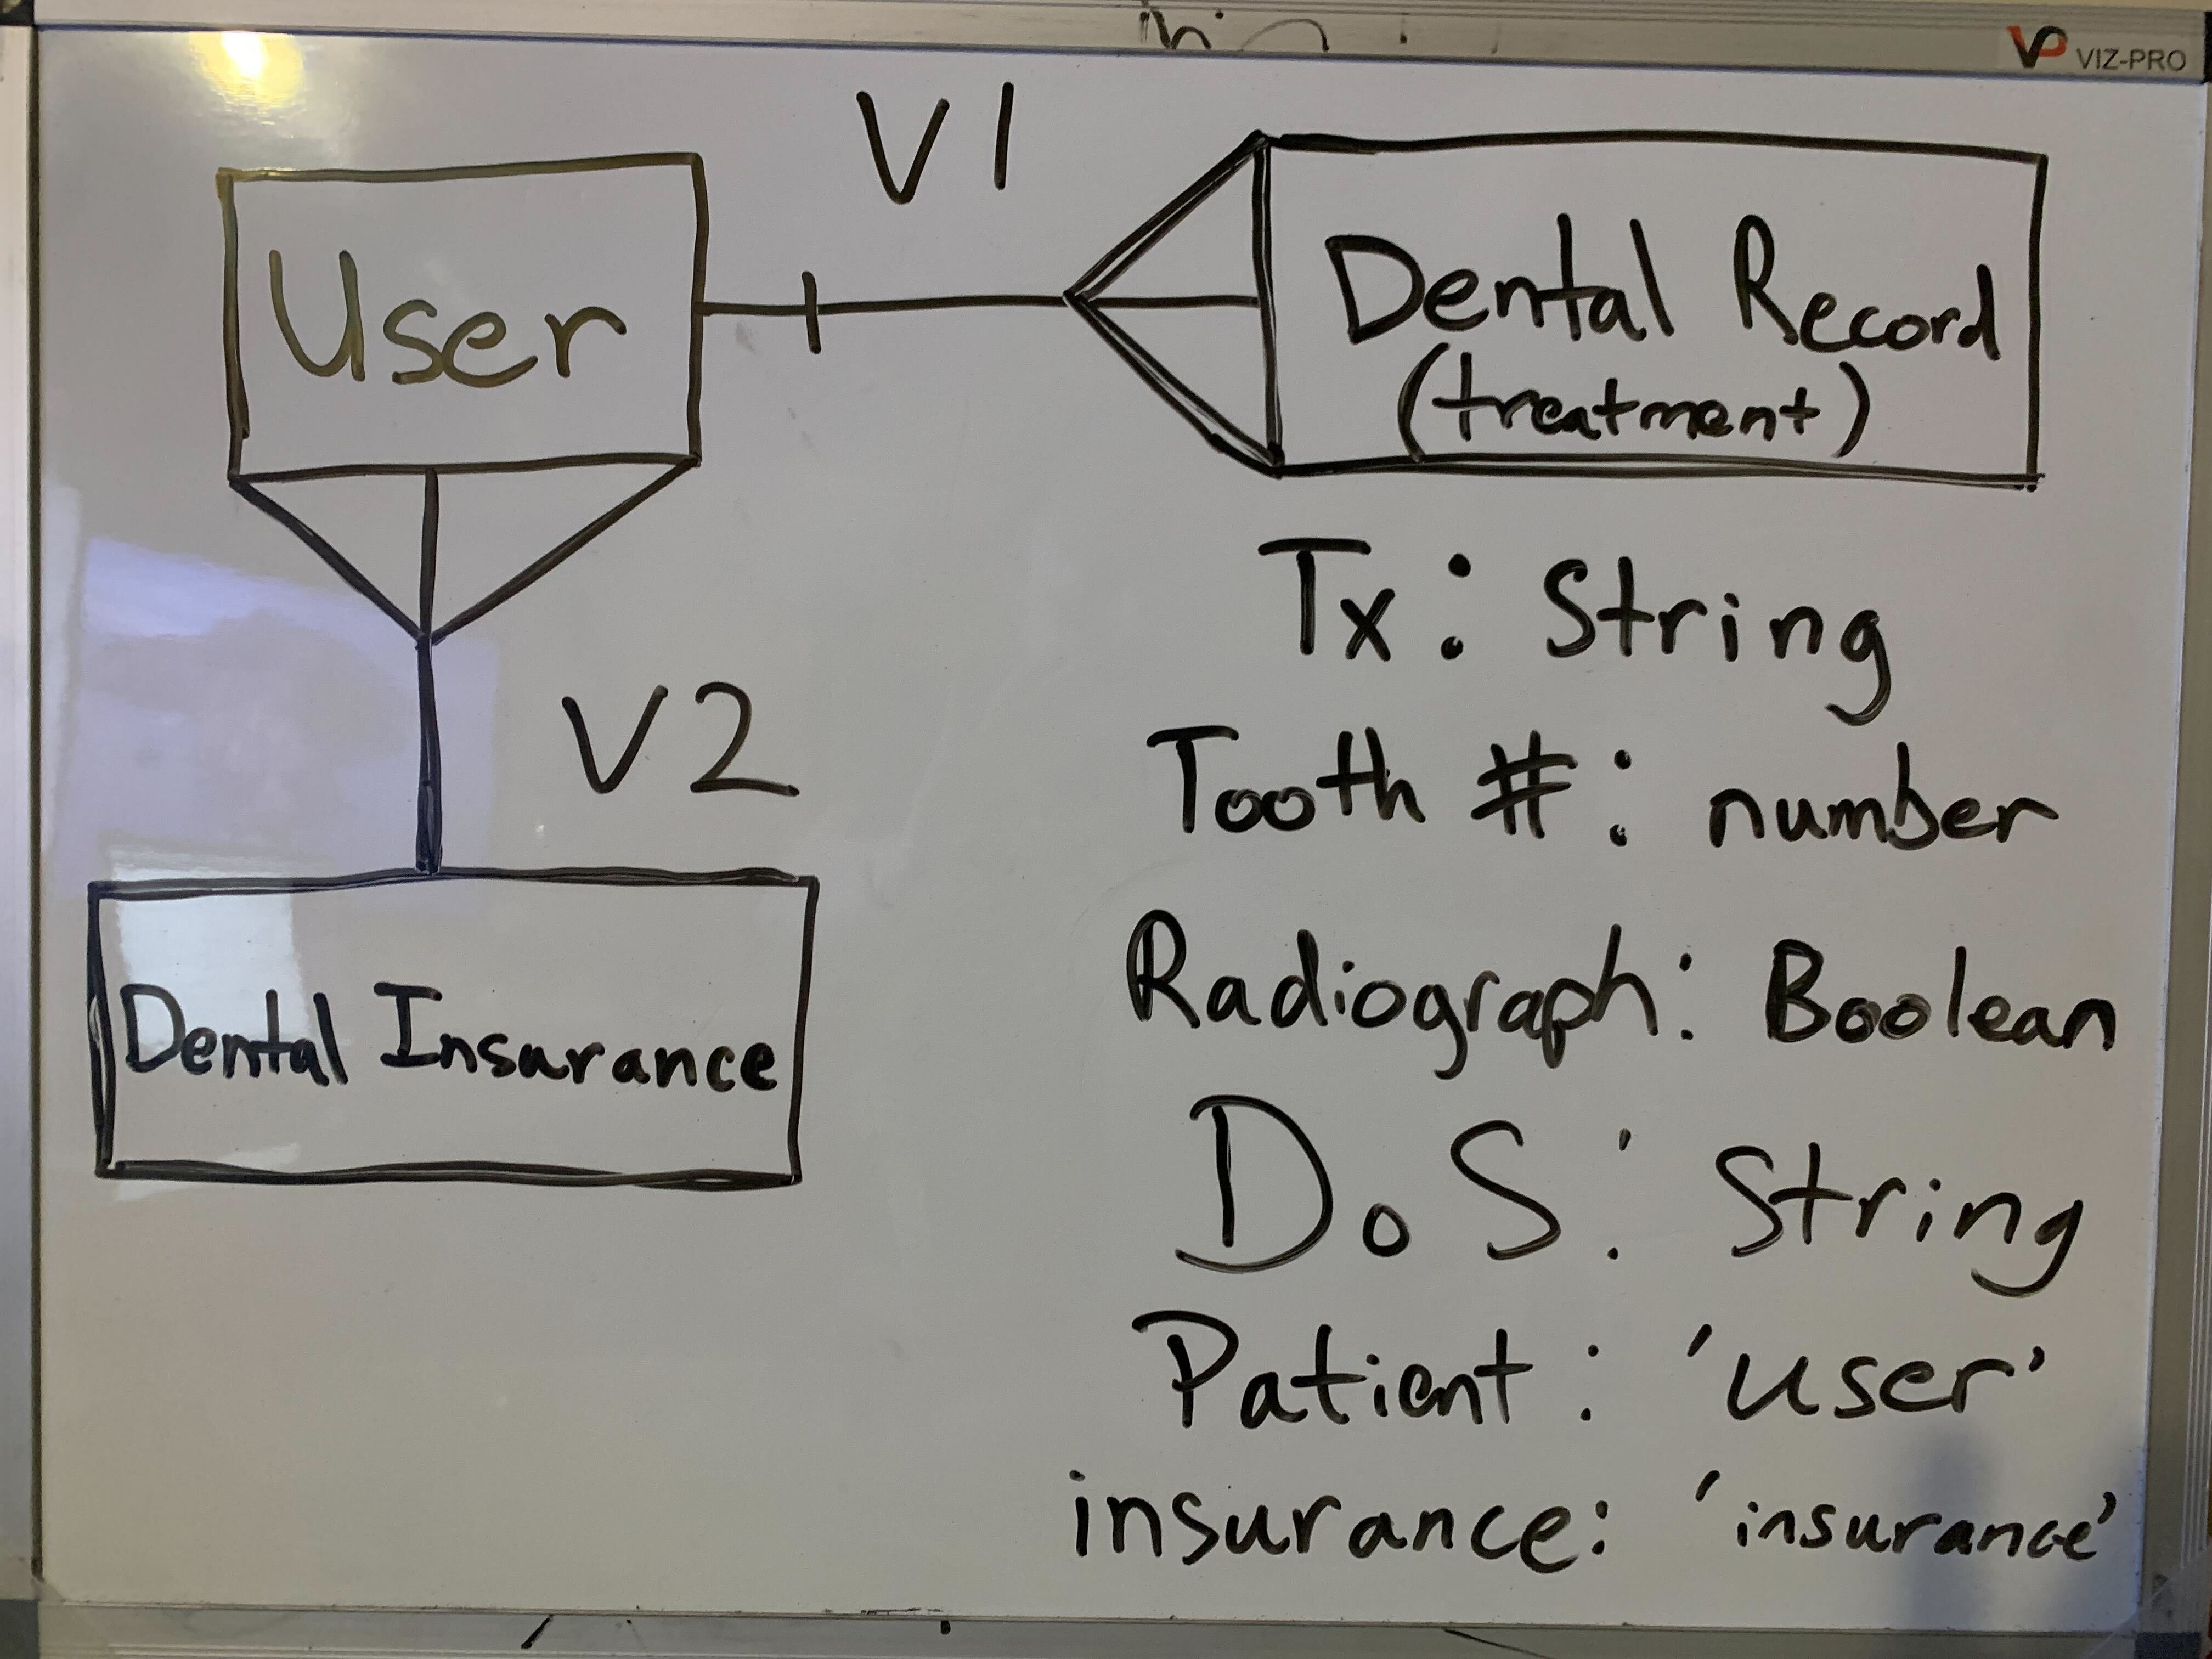 VP VIZ-PRO
V1
User
Dental Record
(treatment)
V2
Dental Insurance
Tx: String
Tooth #: number
Radiograph: Boolean
DoS: String
Patient: 'user'
insurance: 'insurance'